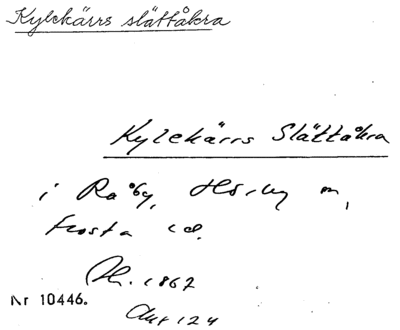 Kylekärrs slättåkra
Kylekärrs Slättåkra
i Råby, Hörby m,
Frosta
1867
Nr 10446.
Akt 124